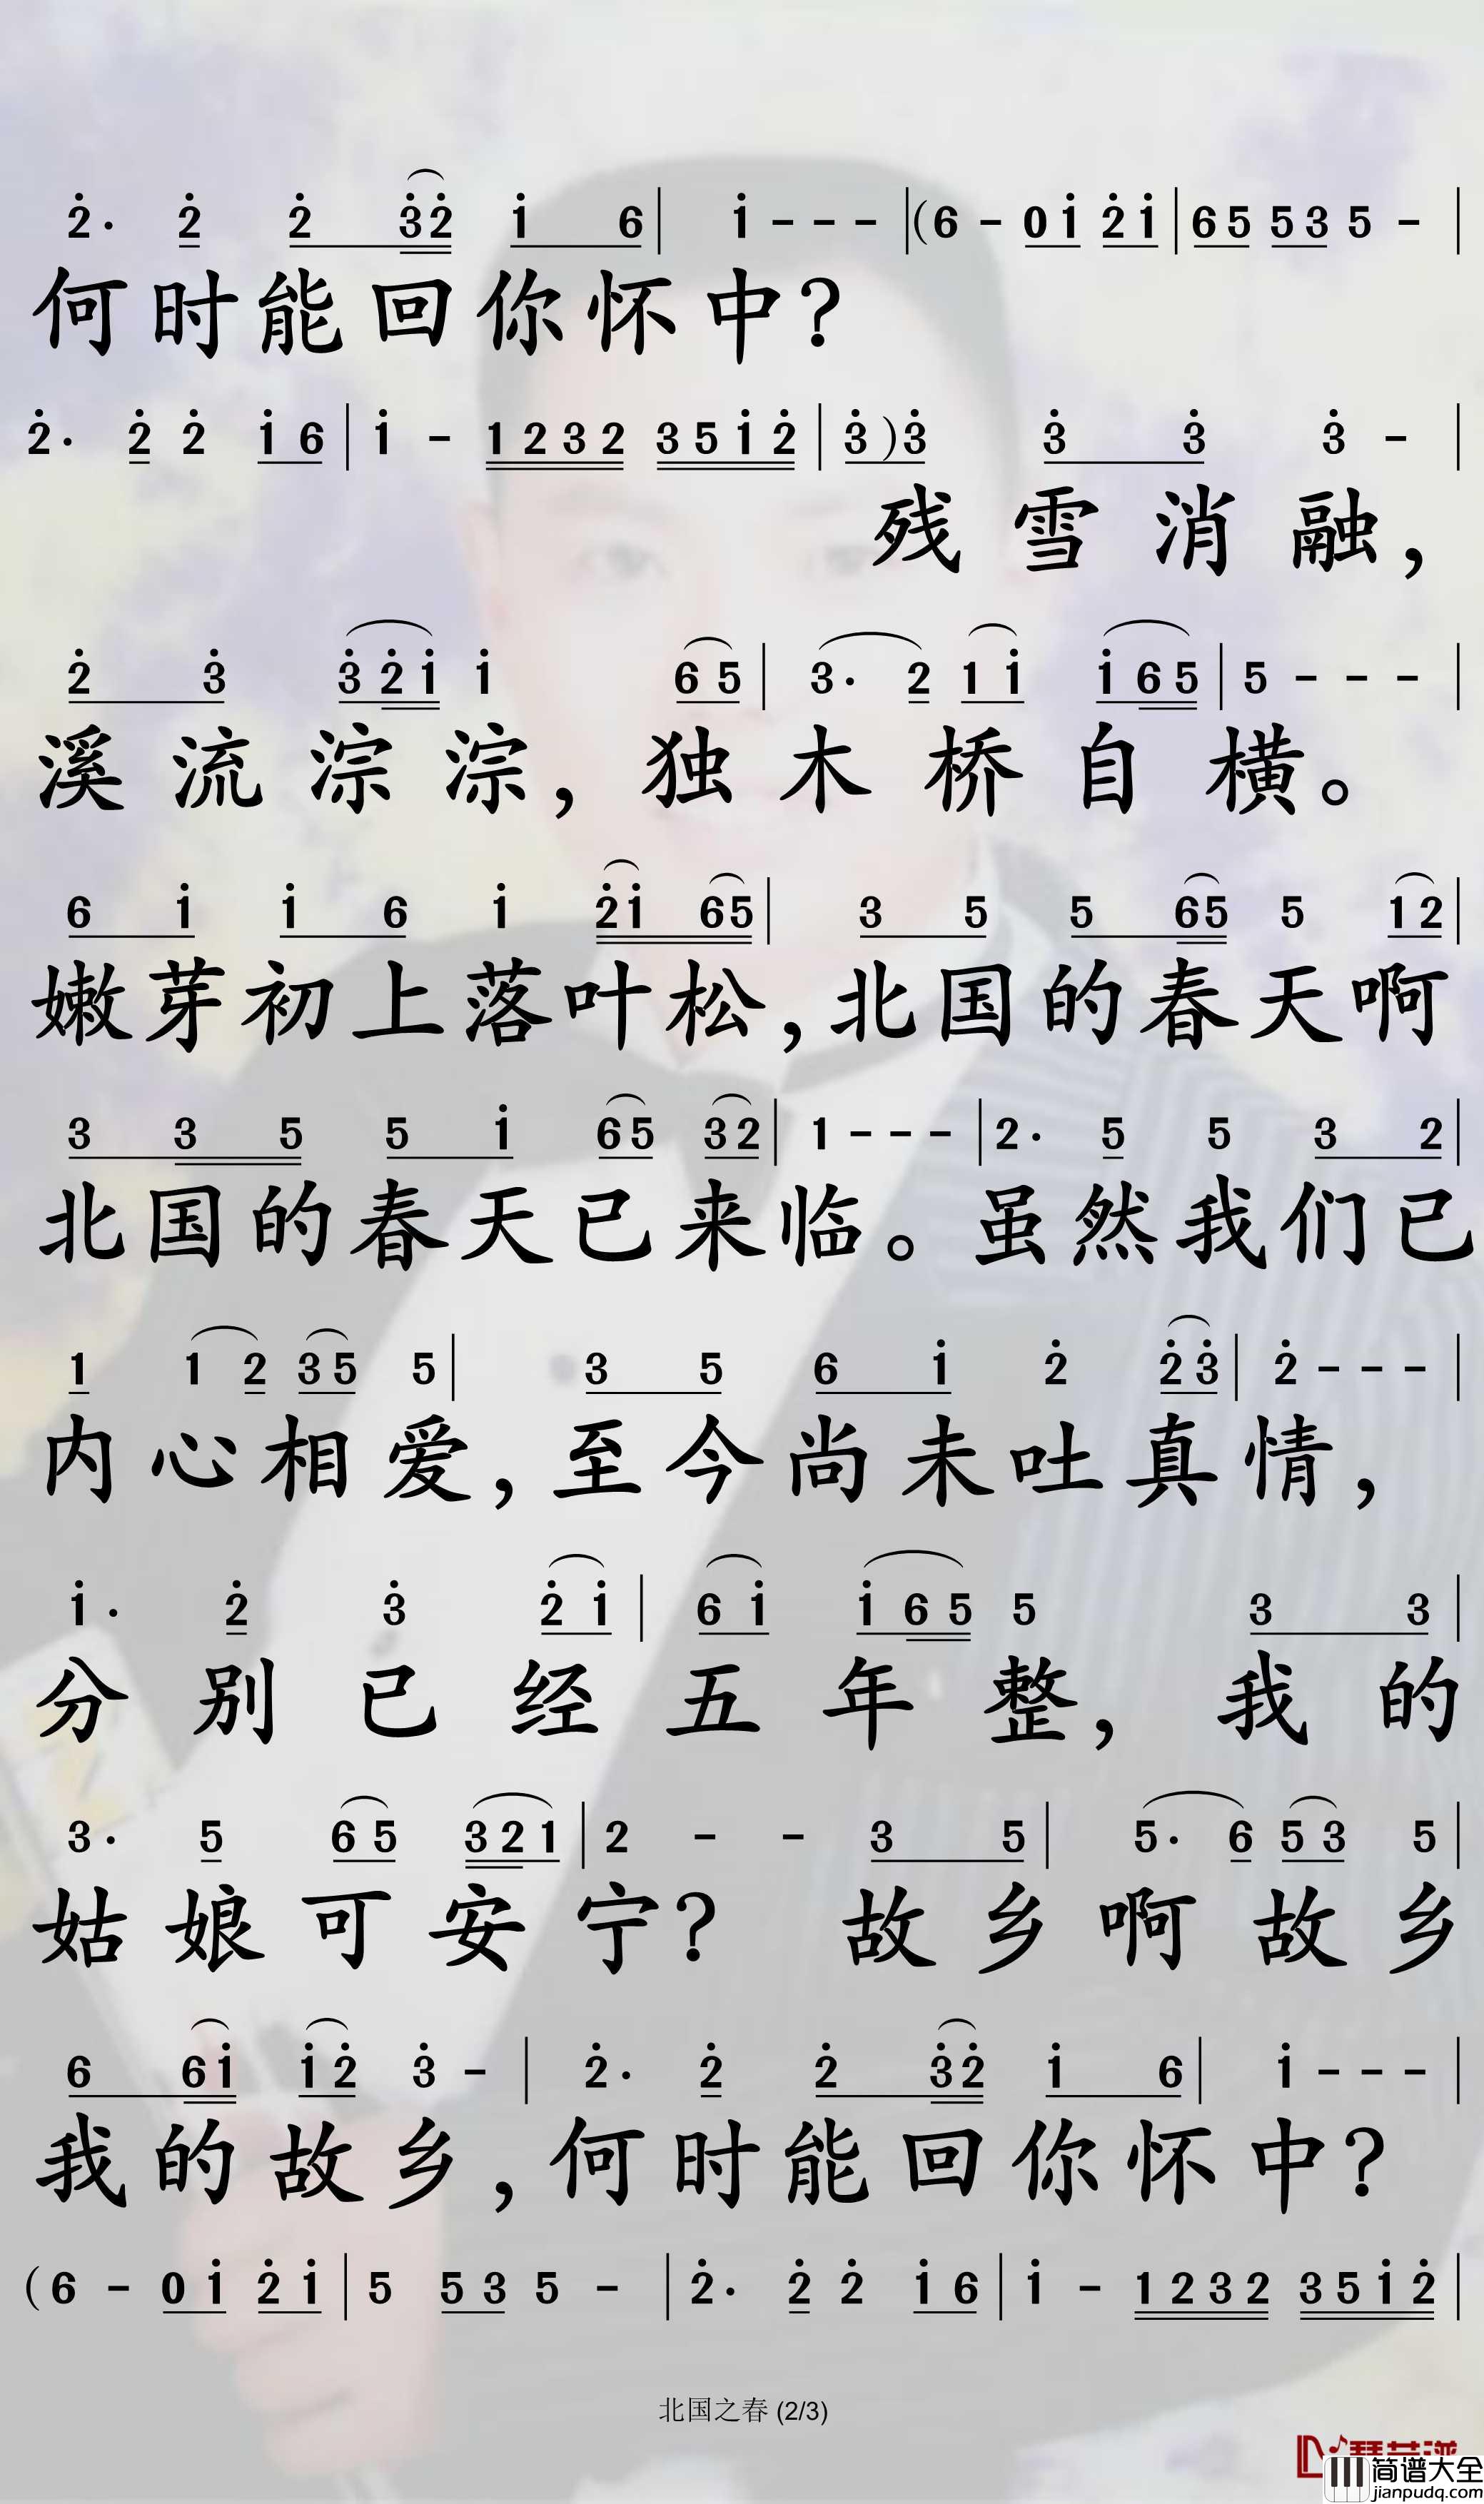 2̇· 2̇ 2̇ 3̇2̇ 1̇ 6 | 1̇ - - - | (6 - 01̇ 2̇1̇ | 65 53 5 - |
何时能回你怀中?
2̇· 2̇ 2̇ 1̇6 | 1̇ - 1232 351̇2̇ | 3̇)3̇ 3̇ 3̇ 3̇ - |
残雪消融,
2̇ 3̇ 3̇2̇1̇ 1̇ 65 | 3· 2 11̇ 1̇65 | 5 - - - |
溪流淙淙,独木桥自横。
6 1̇ 1̇ 6 1̇ 2̇1̇ 65 | 3 5 5 65 5 12 |
嫩芽初上落叶松,北国的春天啊
3 3 5 5 1̇ 65 32 | 1 - - - | 2· 5 5 3 2 |
北国的春天已来临。虽然我们已
1 1 2 35 5 | 3 5 6 1̇ 2̇ 2̇3̇ | 2̇ - - - |
内心相爱,至今尚未吐真情,
1̇· 2̇ 3̇ 2̇1̇ | 61̇ 1̇65 5 3 3 |
分别已经五年整,我的
3· 5 65 321 | 2 - - 3 5 | 5· 6 53 5 |
姑娘可安宁?故乡啊故乡
6 61̇ 1̇2̇ 3̇ - | 2̇· 2̇ 2̇ 3̇2̇ 1̇ 6 | 1̇ - - - |
我的故乡,何时能回你怀中?
(6 - 01̇ 2̇1̇ | 5 53 5 - | 2̇· 2̇ 2̇ 1̇6 | 1̇ - 1232 351̇2̇ |
北国之春 (2/3)
简谱大全
jianpudq.com